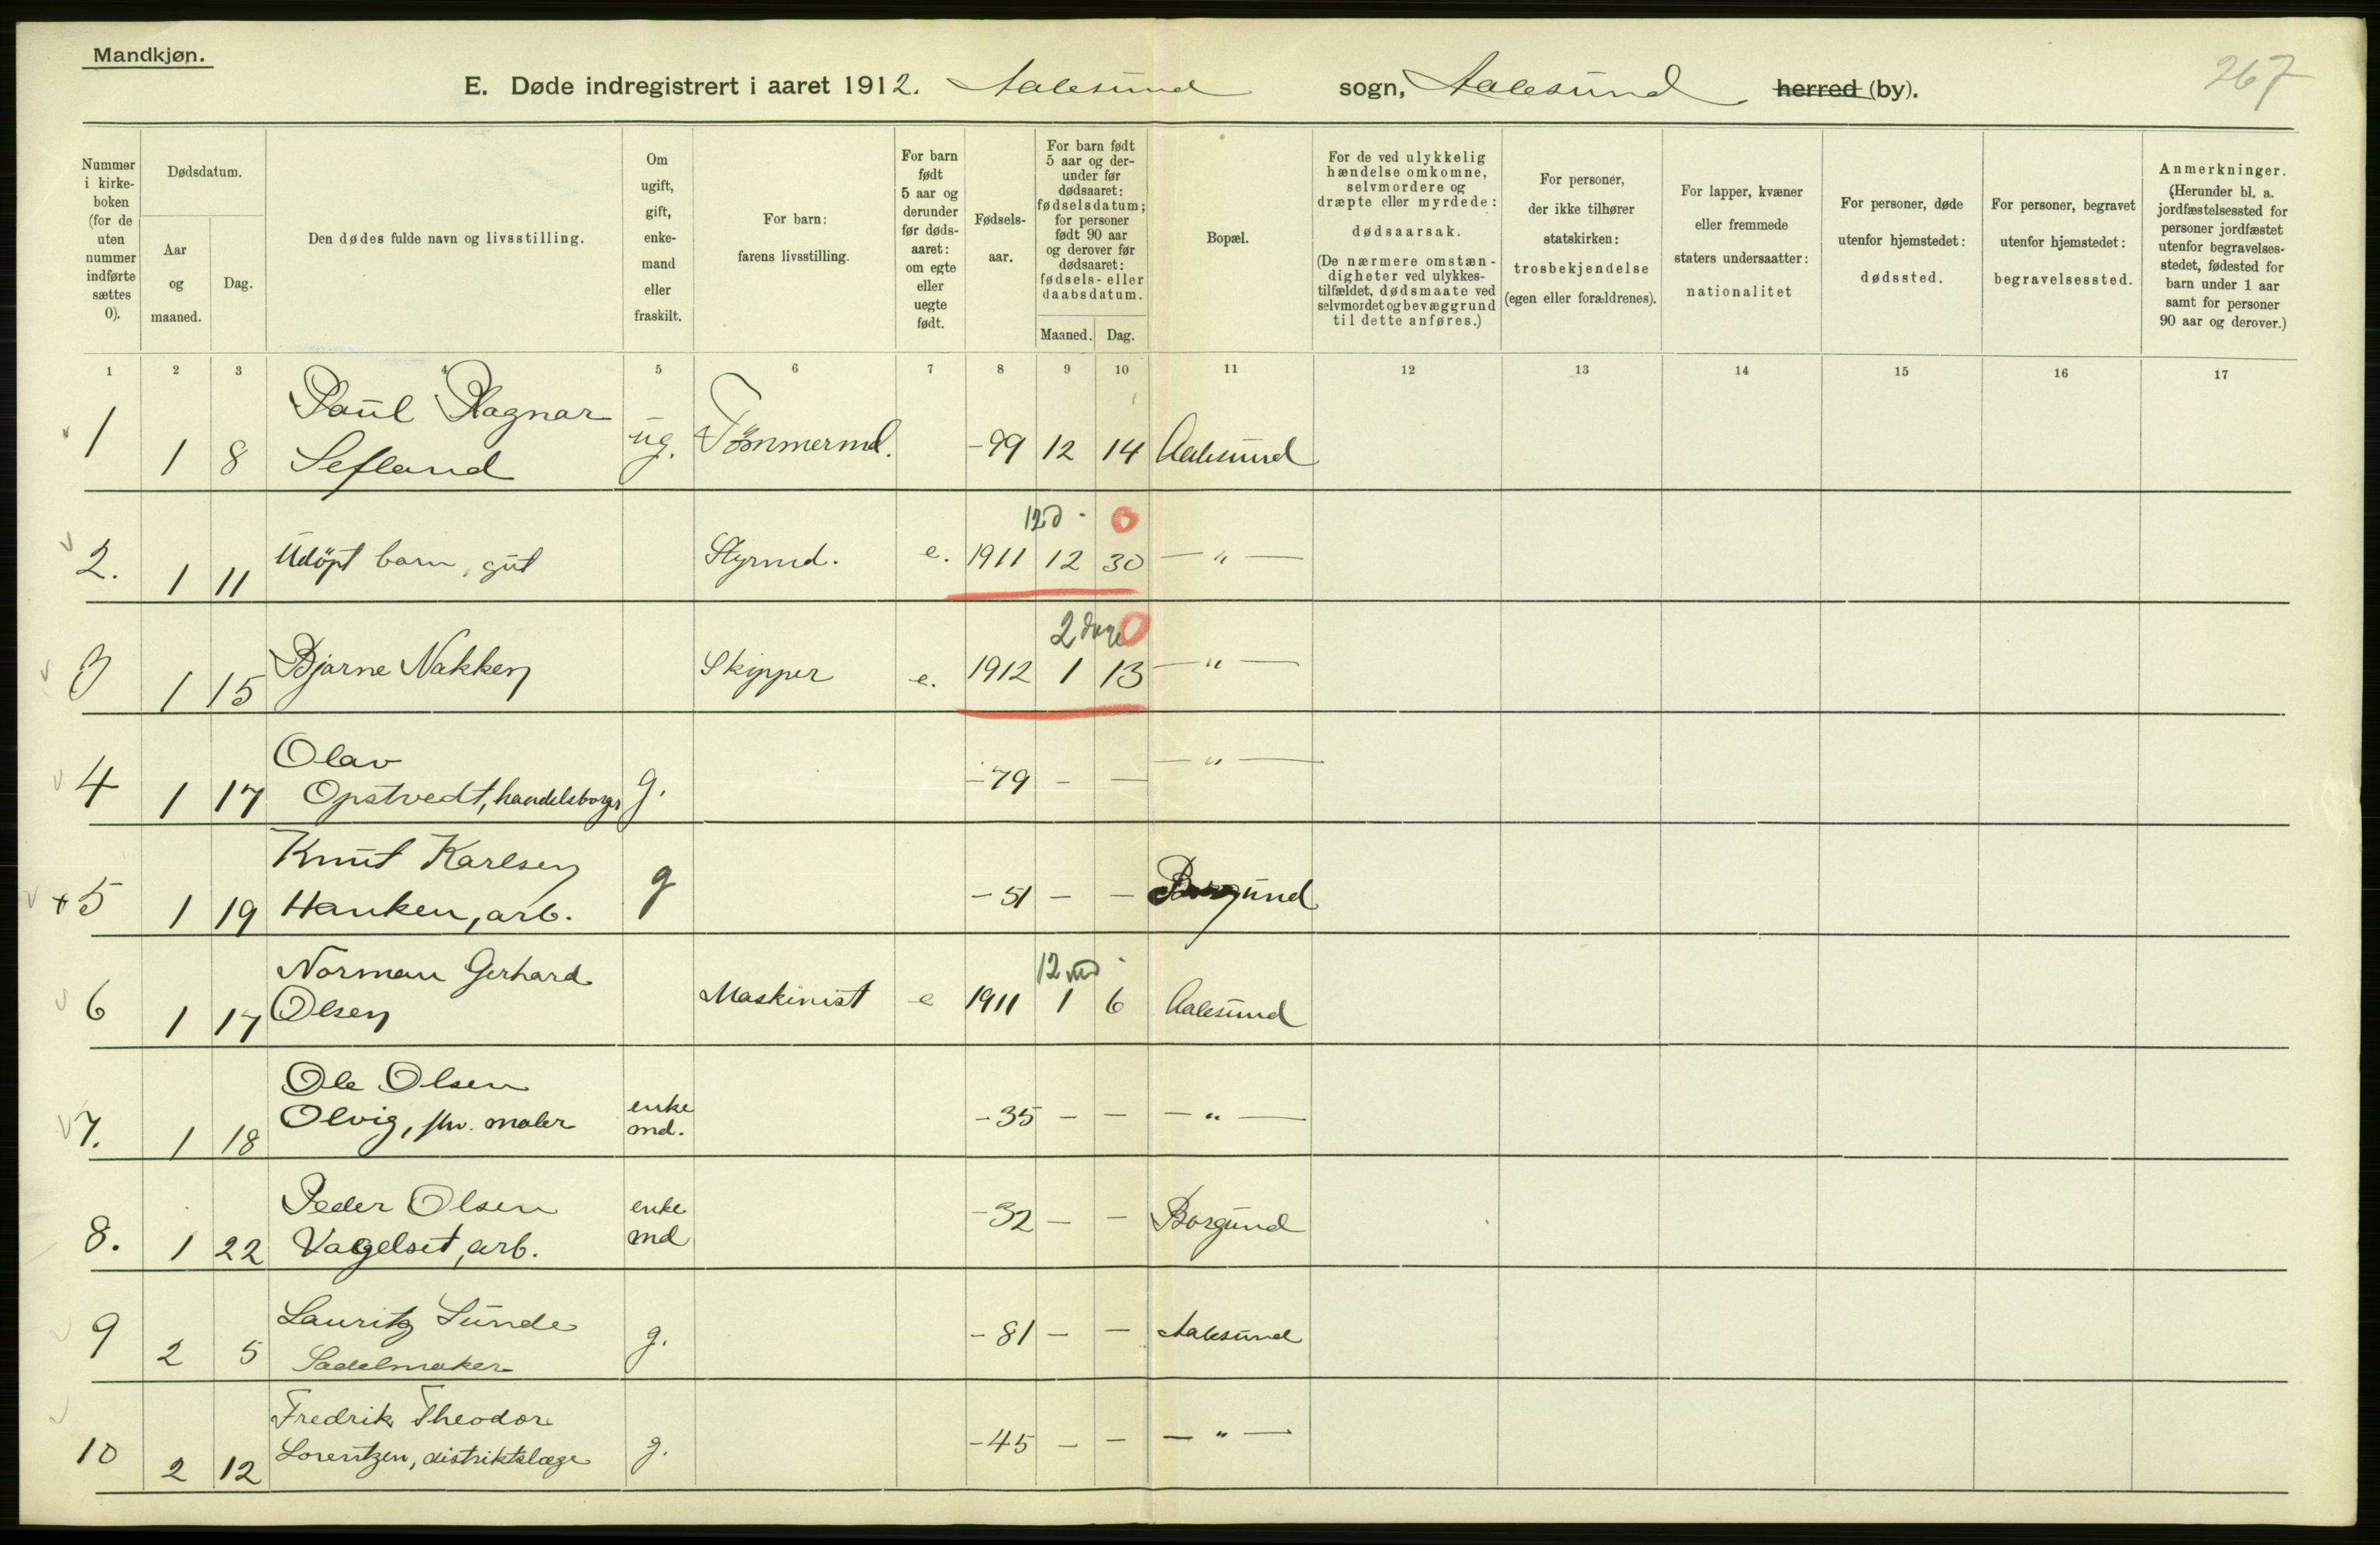 Mandkjøn.
E. Døde indregistrert i aaret 1912. Aalesund sogn, Aalesund herred (by).
267
Nummer i kirke-boken (for de uten nummer indførte sættes 0).
Dødsdatum.
Aar og maaned.
Dag.
Den dødes fulde navn og livsstilling.
Om ugift, gift, enke-mand eller fraskilt.
For barn: farens livsstilling.
For barn født 5 aar og derunder før døds-aaret: om egte eller uegte født.
Fødsels-aar.
For barn født 5 aar og der-under før dødsaaret: fødselsdatum; for personer født 90 aar og derover før dødsaaret: fødsels- eller daabsdatum.
Maaned. Dag.
Bopæl.
For de ved ulykkelig hændelse omkomne, selvmordere og dræpte eller myrdede: dødsaarsak. (De nærmere omstæn-digheter ved ulykkes-tilfældet, dødsmaate ved selvmordet og bevæggrund til dette anføres.)
For personer, der ikke tilhører statskirken: trosbekjendelse (egen eller forældrenes).
For lapper, kvæner eller fremmede staters undersaatter: nationalitet
For personer, døde utenfor hjemstedet: dødssted.
For personer, begravet utenfor hjemstedet: begravelsessted.
Anmerkninger. (Herunder bl. a. jordfæstelsessted for personer jordfæstet utenfor begravelses-stedet, fødested for barn under 1 aar samt for personer 90 aar og derover.)
1 2 3 4 5 6 7 8 9 10 11 12 13 14 15 16 17
1 1 8 Paul Ragnar Sefland ug. Tömmermd. -99 12 14 Aalesund
12 d. 0
2. 1 11 Udöpt barn, gut Styrmd. e. 1911 12 30 — " —
2 dage 0
3 1 15 Bjarne Nakken Skipper e. 1912 1 13 — " —
4 1 17 Olav Opstvedt, handelsborger g. -79 - — — " —
+5 1 19 Knut Karlsen Hanken, arb. g -51 — — Borgund
12 md
6 1 17 Norman Gerhard Olsen Maskinist e 1911 1 6 Aalesund
7. 1 18 Ole Olsen Olvig, fhv. maler enke md. -35 — — — " —
8. 1 22 Peder Olsen Vagelset, arb. enke md -32 — — Borgund
9 2 5 Lauritz Sunde Sadelmaker g. -81 — — Aalesund
10 2 12 Fredrik Theodor Lorentzen, distriktslæge g. -45 — — — " —